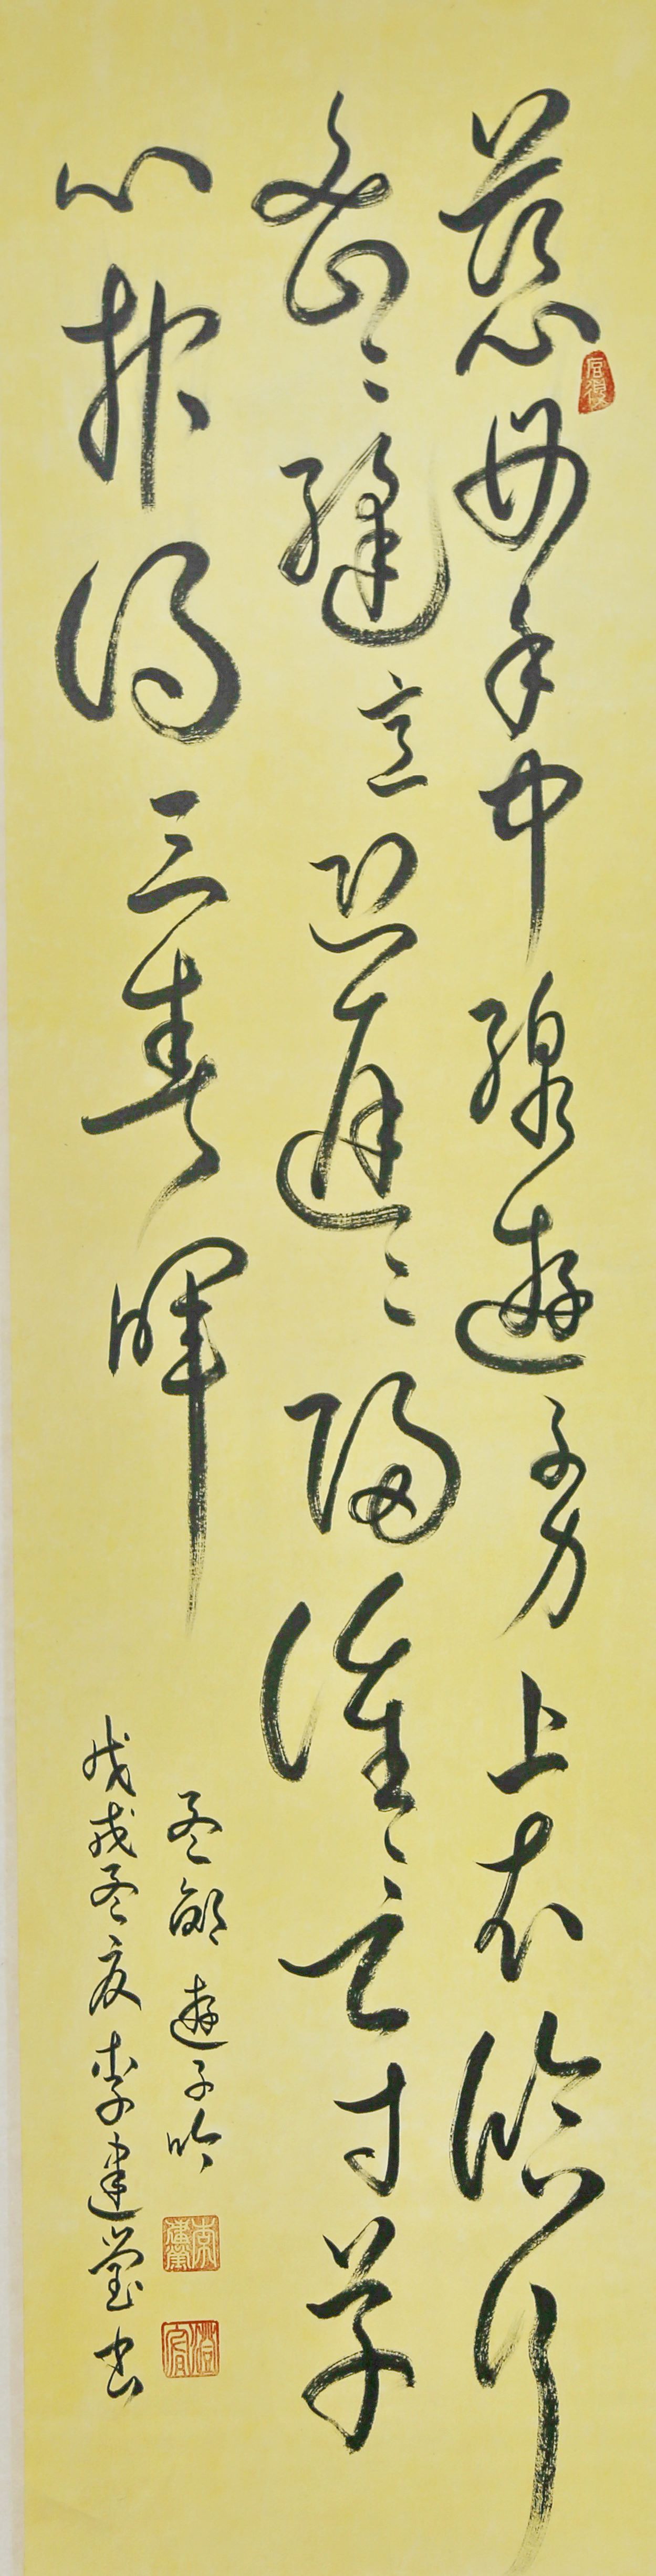 慈母手中線遊子身上衣臨行
密々縫意恐遲々歸誰言寸草
心報得三春暉
孟郊遊子吟
戊戌冬友李建瑩書